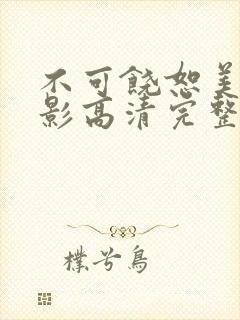 不可饶恕美
影高清完整
樸兮鳥